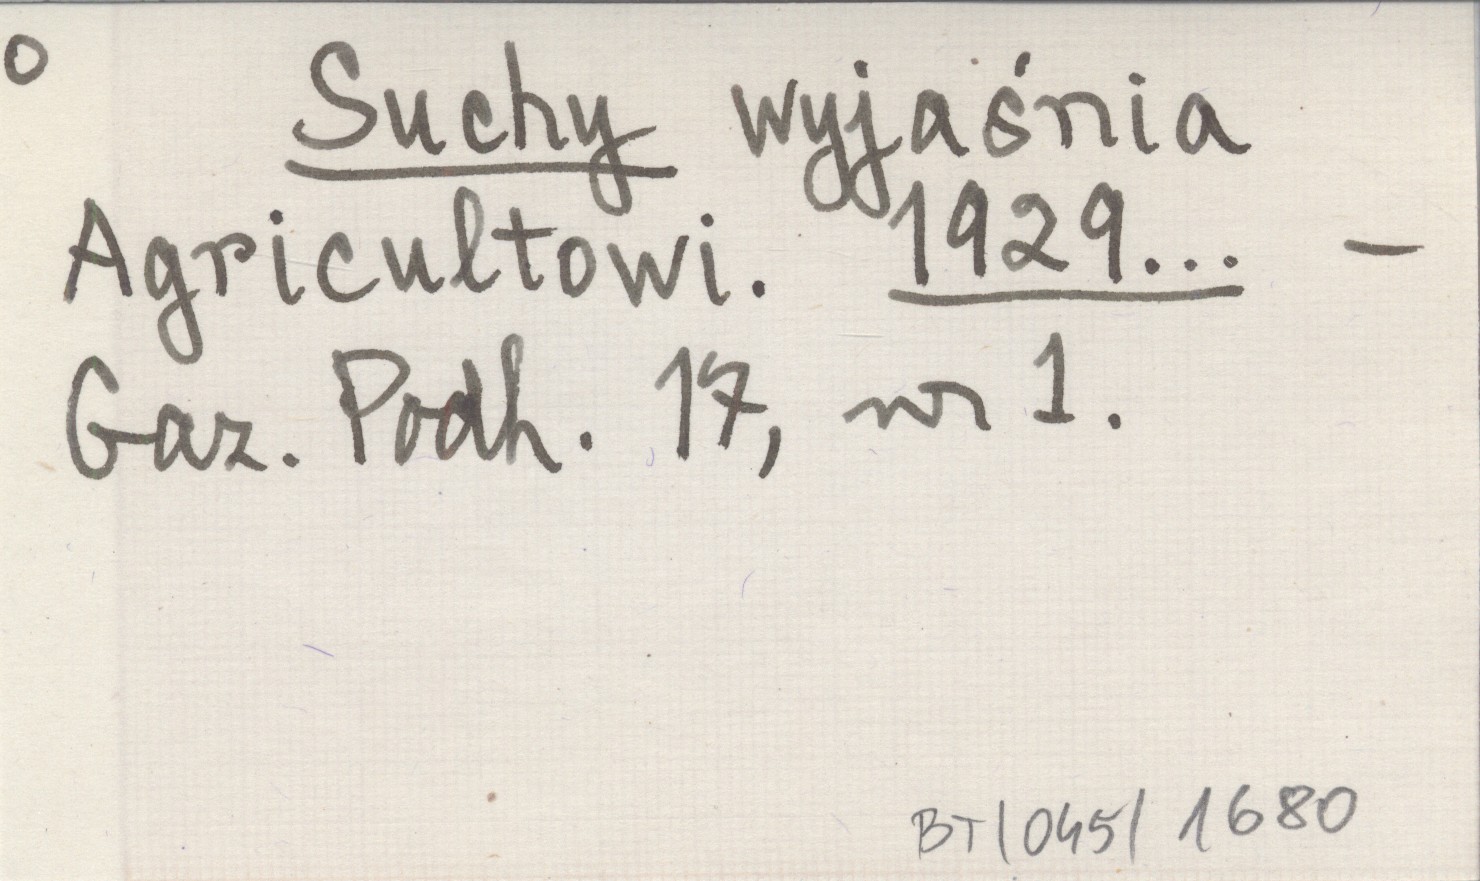 o Suchy wyjaśnia
Agricultowi. 1929... –
Gaz. Podh. 17, nr 1.
BT/045/1680